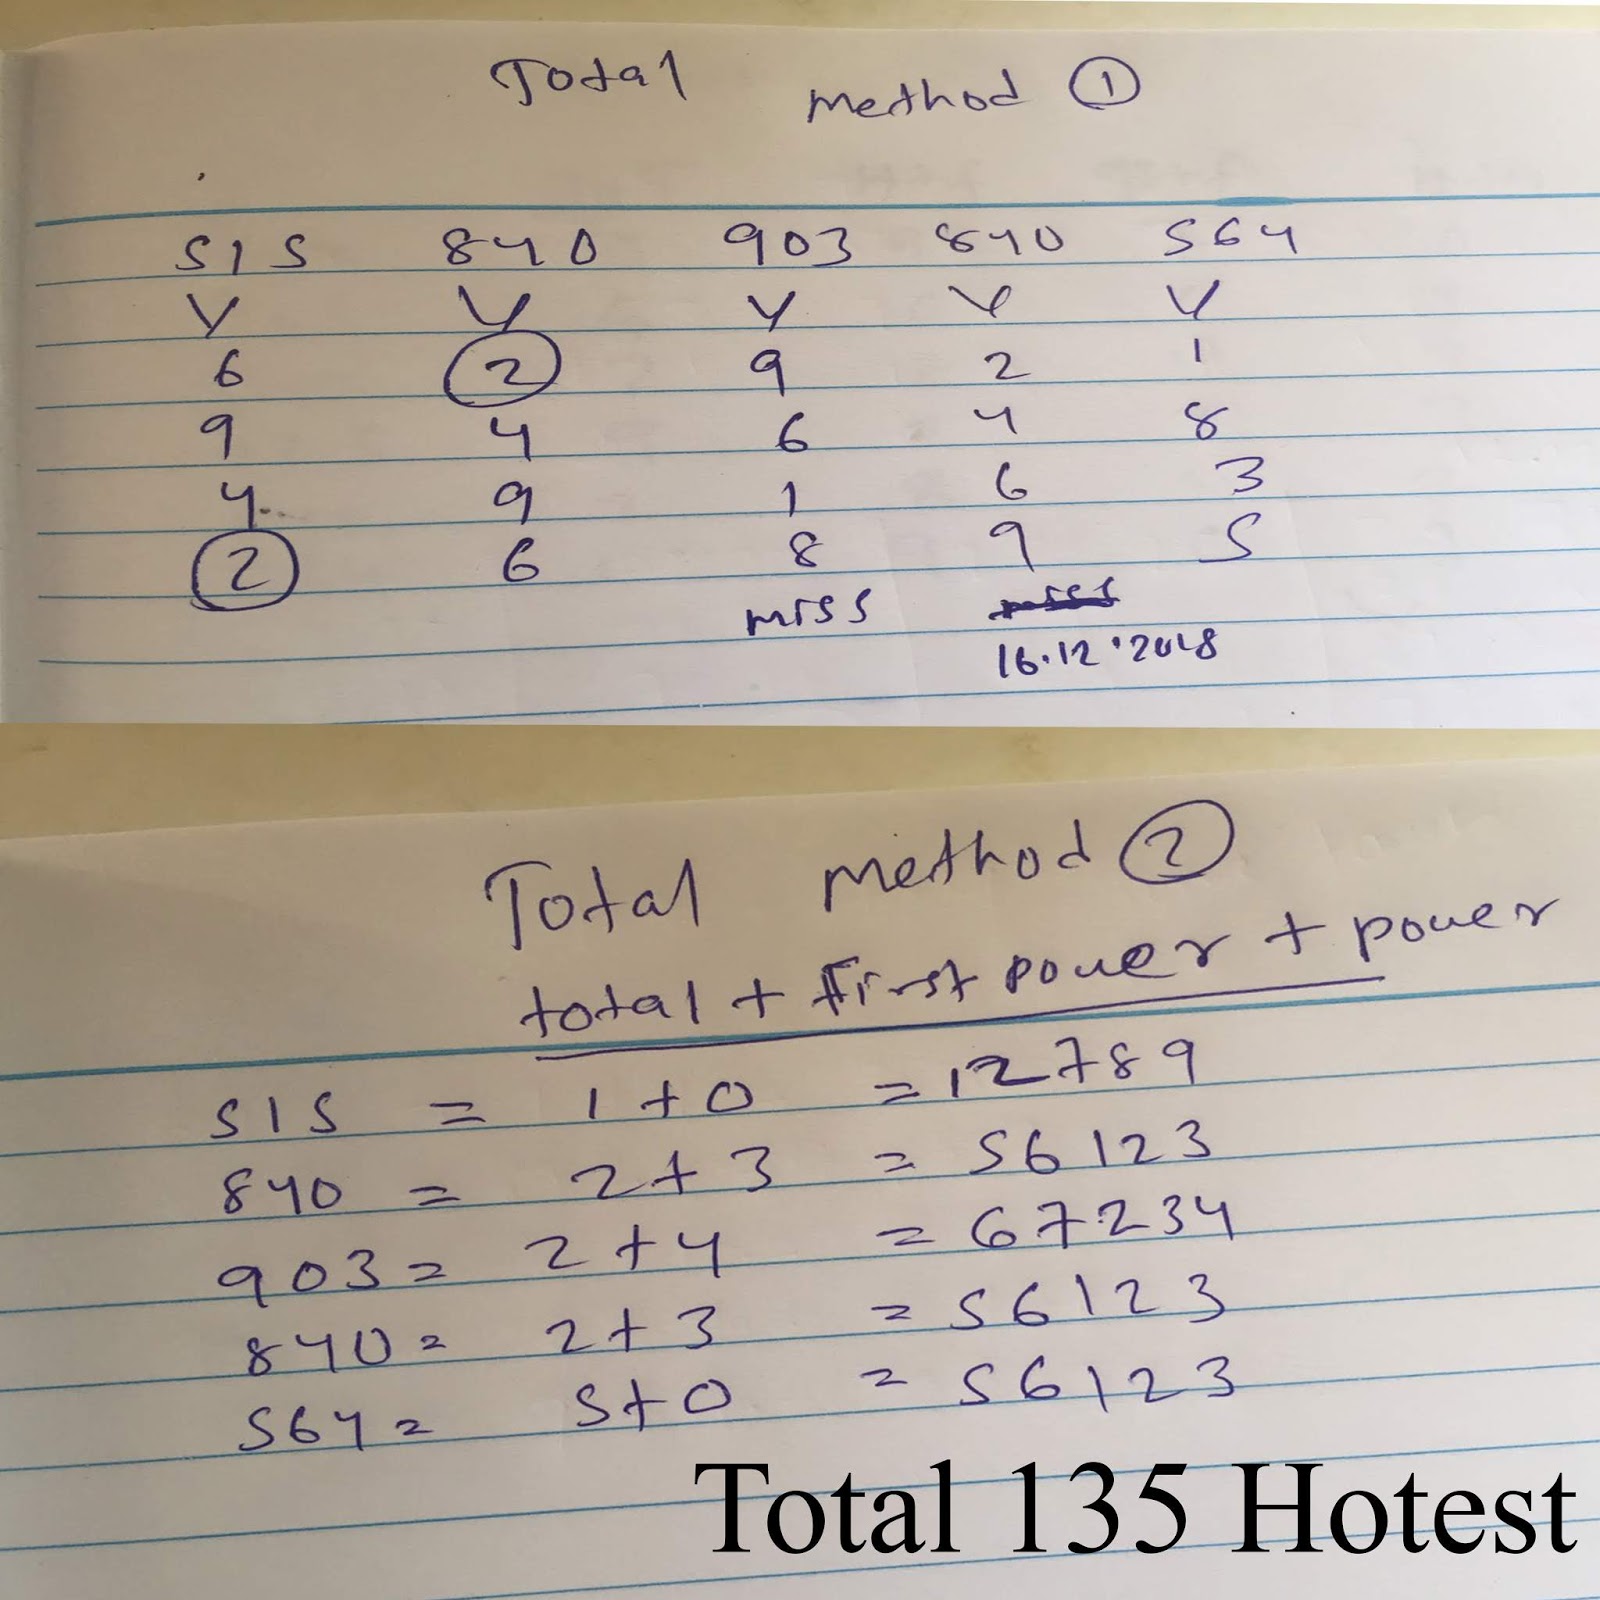 Total method 1
515 840 903 840 564
6 2 9 2 1
9 4 6 4 8
4 9 1 6 3
2 6 8 9 5
miss miss
16.12.2018
Total method 2
total + first power + power
515 = 1+0 = 12789
840 = 2+3 = 56123
903 = 2+4 = 67234
840 = 2+3 = 56123
564 = 5+0 = 56123
Total 135 Hotest